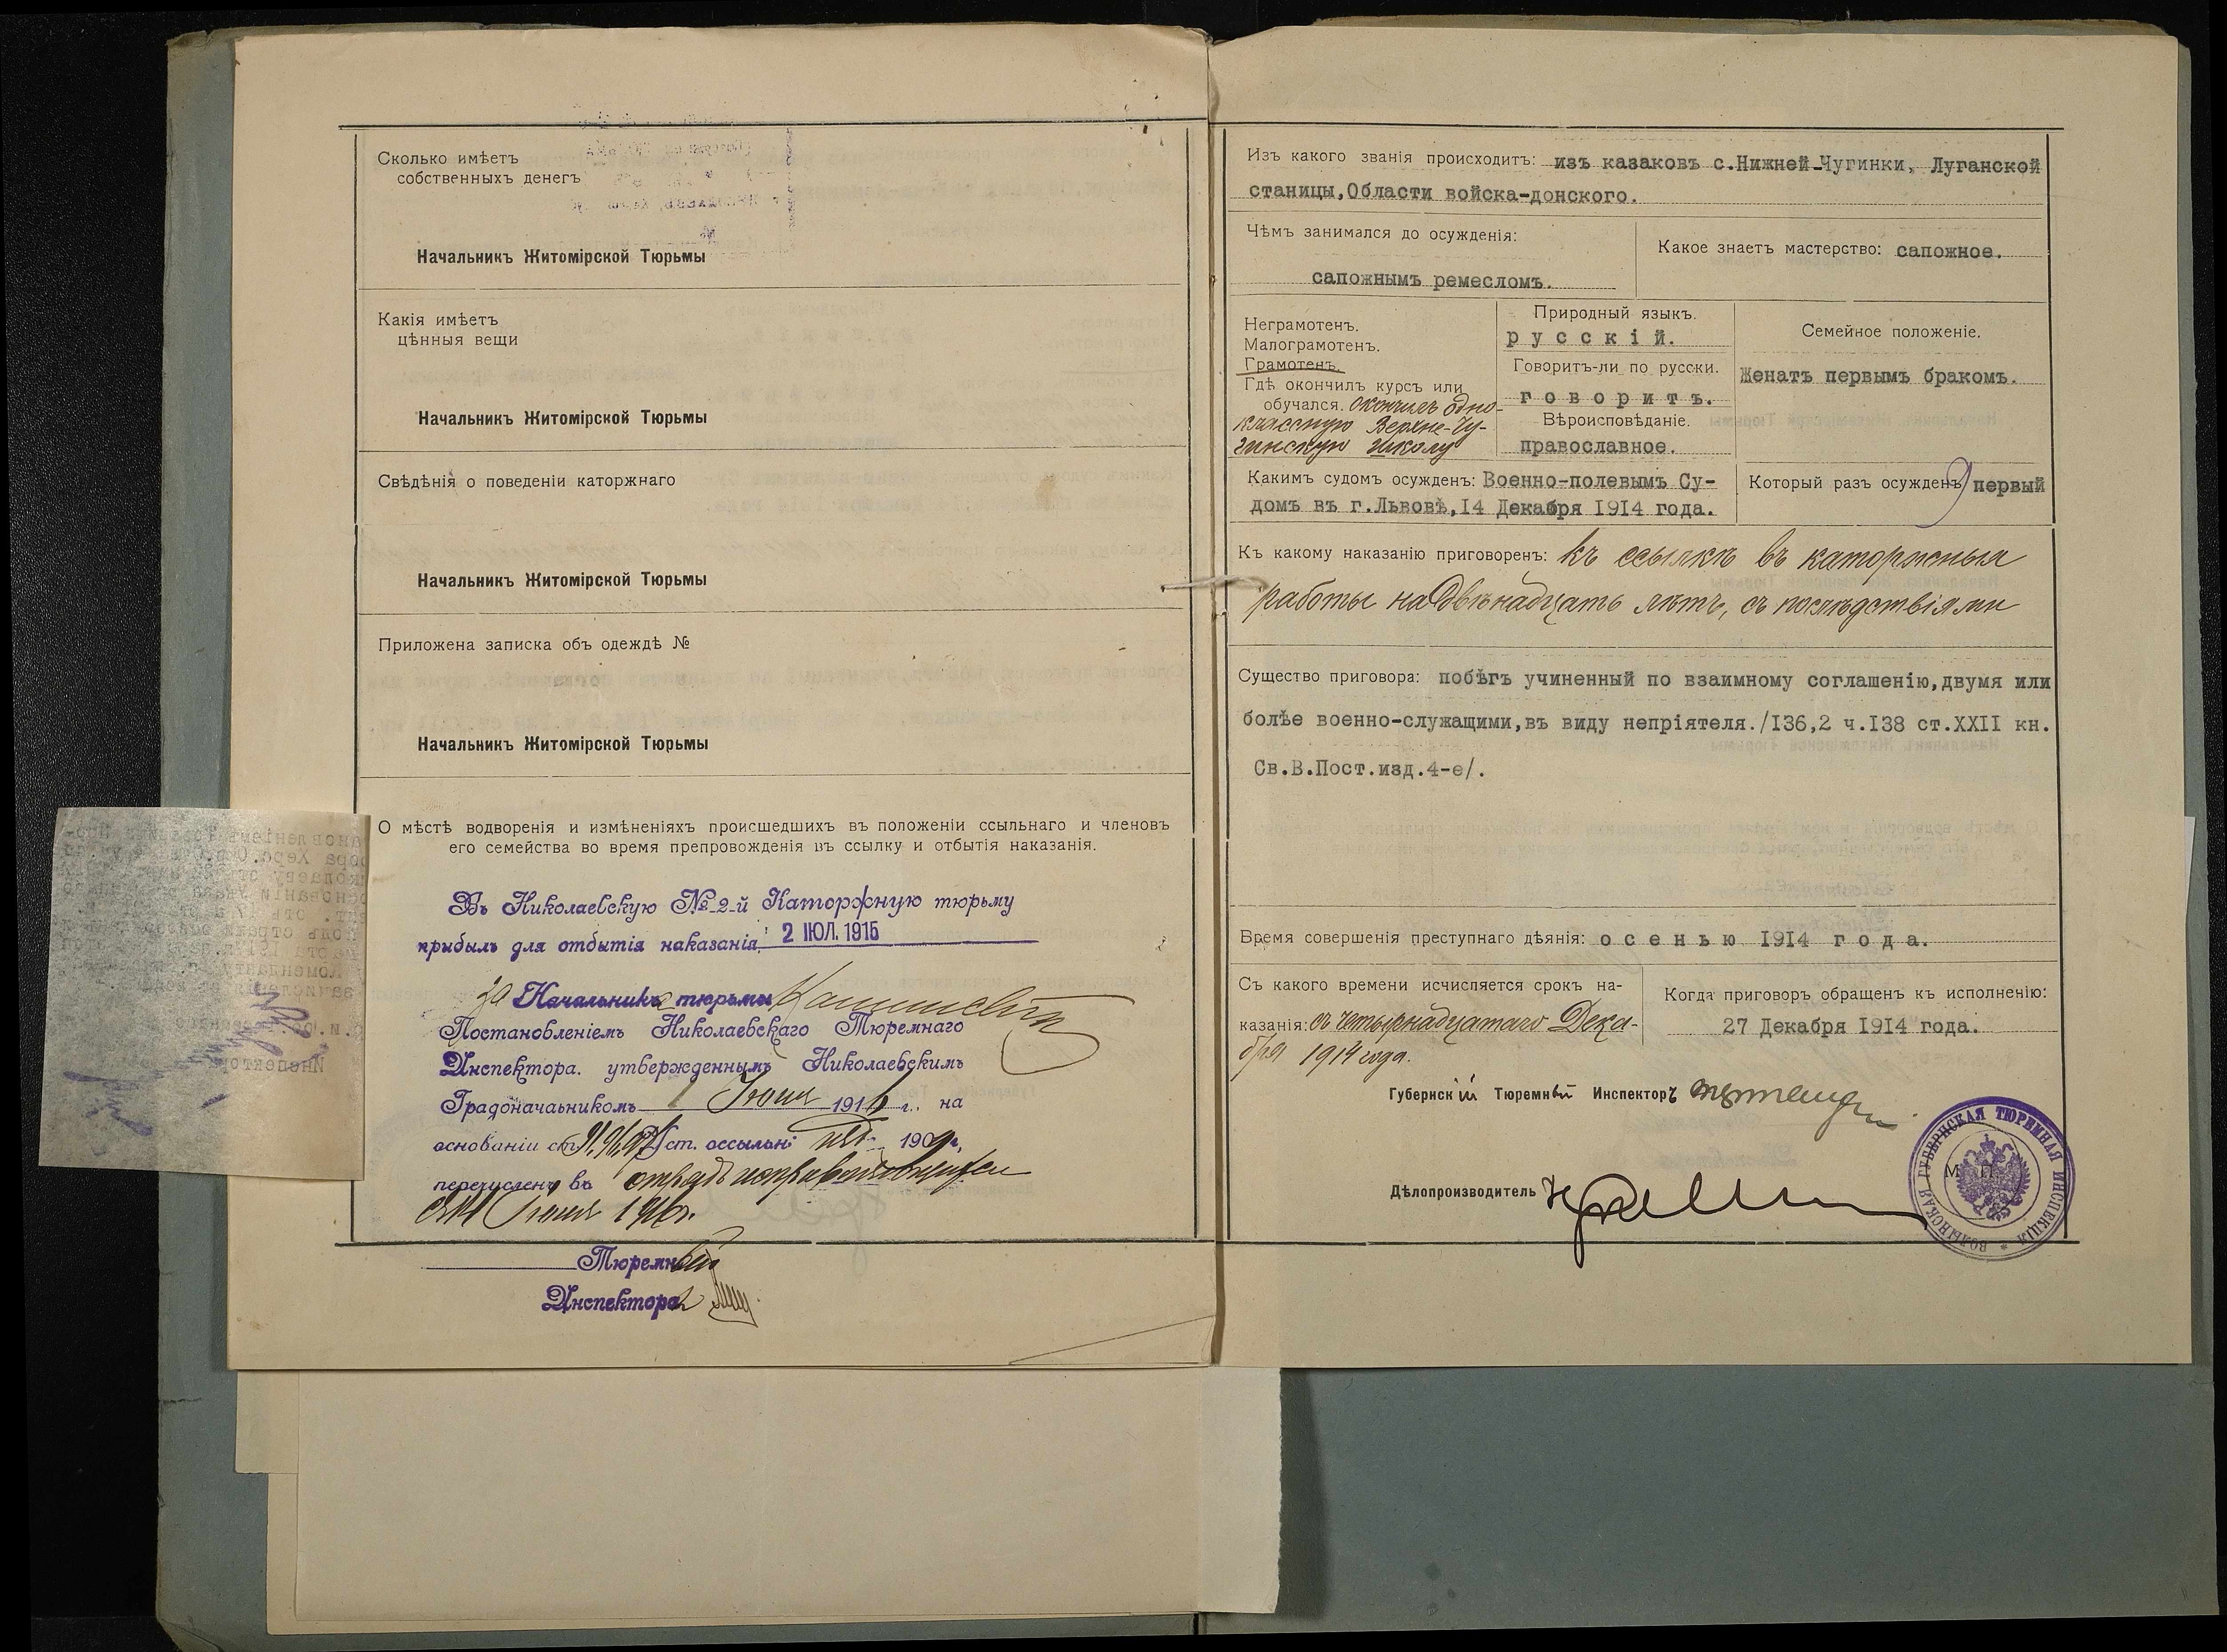 Сколько имѣетъ
собственныхъ денегъ
Начальникъ Житомірской Тюрьмы
Какія имѣетъ
цѣнныя вещи
Начальникъ Житомірской Тюрьмы
Свѣдѣнія о поведеніи каторжнаго
Начальникъ Житомірской Тюрьмы
Приложена записка объ одеждѣ №
Начальникъ Житомірской Тюрьмы
О мѣстѣ водворенія и измѣненіяхъ происшедшихъ въ положеніи ссыльнаго и членовъ
его семейства во время препровожденія въ ссылку и отбытія наказанія.
Въ Николаевскую № 2-й Каторжную тюрьму
прибылъ для отбытія наказанія 2 ІЮЛ. 1915
За Начальника тюрьмы
Постановленіемъ Николаевскаго Тюремнаго
Инспектора. утвержденнымъ Николаевскимъ
Градоначальникомъ 1 Іюня 1916 г. на
основаніи ст. уст. оссыльн: изд. 1909 г.
перечисленъ въ отрядъ исправляющихся
Іюня 1916 г.
Тюремный
Инспекторъ
Изъ какого званія происходитъ: изъ казаковъ с.Нижней-Чугинки, Луганской
станицы,Области войска-донского.
Чѣмъ занимался до осужденія:
сапожнымъ ремесломъ.
Какое знаетъ мастерство: сапожное.
Неграмотенъ.
Малограмотенъ.
Грамотенъ.
Гдѣ окончилъ курсъ или
обучался. окончилъ одно-
классную Верхне-Чу-
гинскую школу
Природный языкъ.
русскій.
Говоритъ-ли по русски.
говоритъ.
Вѣроисповѣданіе.
православное.
Семейное положеніе.
Женатъ первымъ бракомъ.
Какимъ судомъ осужденъ: Военно-полевымъ Су-
домъ въ г.Львовѣ,I4 Декабря I9I4 года.
Который разъ осужденъ первый
Къ какому наказанію приговоренъ: къ ссылкѣ въ каторжныя
работы на двѣнадцать лѣтъ, съ послѣдствіями
Существо приговора: побѣгъ учиненный по взаимному соглашенію,двумя или
болѣе военно-служащими,въ виду непріятеля./I36,2 ч.I38 ст.XXII кн.
Св.В.Пост.изд.4-е/.
Время совершенія преступнаго дѣянія: осенью I9I4 года.
Съ какого времени исчисляется срокъ на-
казанія: съ четырнадцатаго Дека-
бря 1914 года.
Когда приговоръ обращенъ къ исполненію:
27 Декабря I9I4 года.
Губернскій Тюремный Инспекторъ
Дѣлопроизводитель
М. П.
ВОЛЫНСКАЯ ГУБЕРНСКАЯ ТЮРЕМНАЯ ИНСПЕКЦІЯ